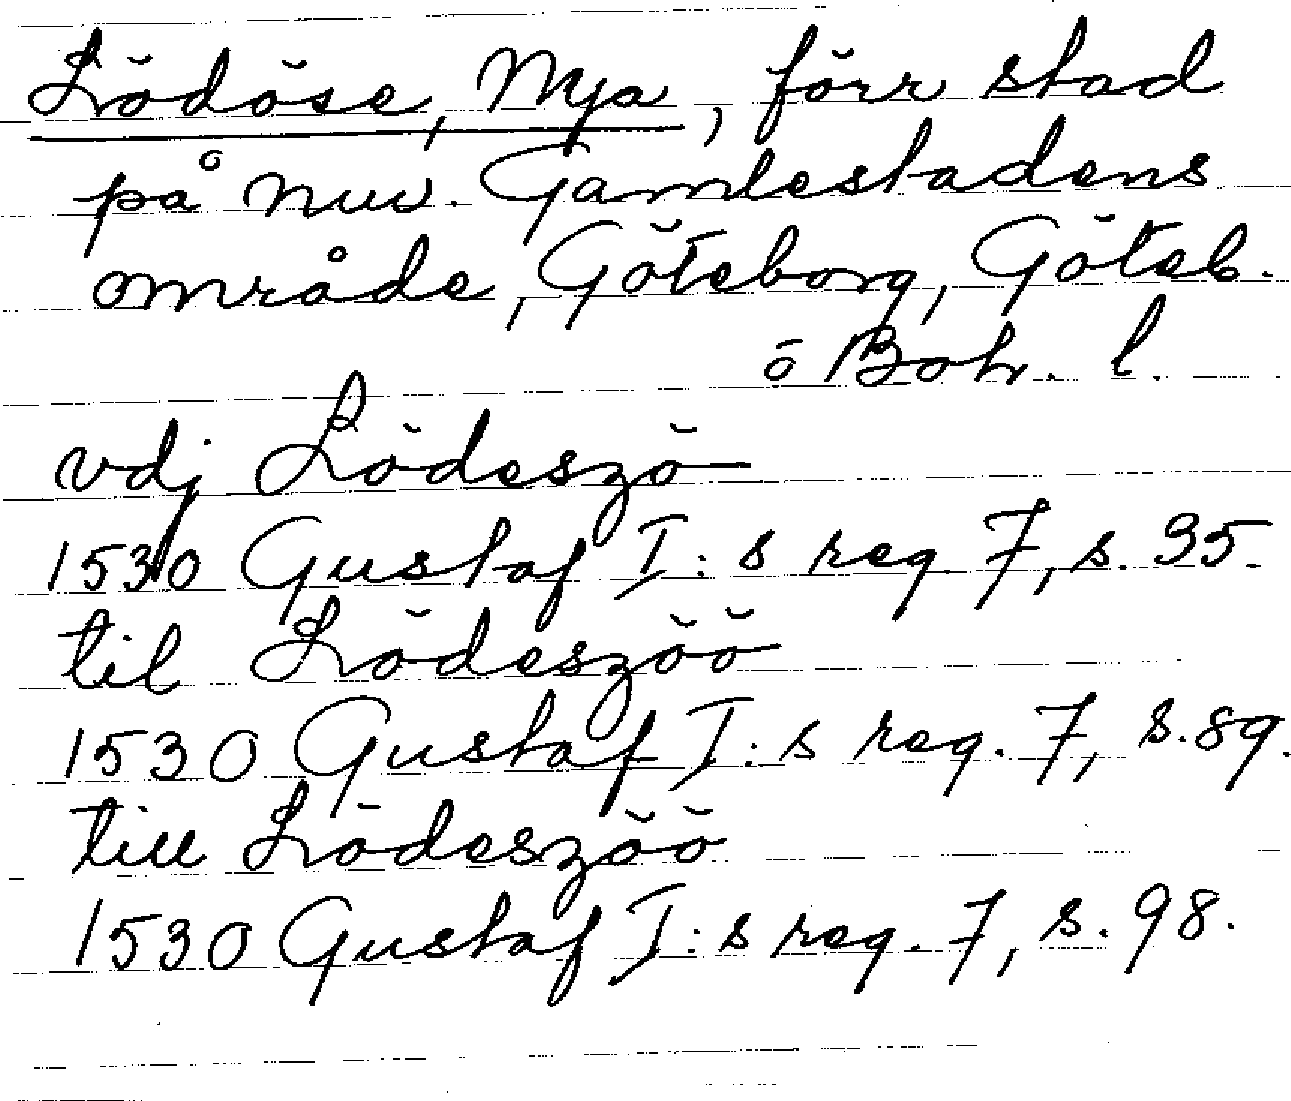 Lödöse, Nya, förr stad
på nuv. Gamlestadens
område, Göteborg, Göteb.
o Boh. l.
vdj Lödeszö
1530 Gustaf I:s reg. 7, s. 35.
til Lödeszöö
1530 Gustaf I:s reg. 7, s. 89.
till Lödeszöö
1530 Gustaf I:s reg. 7, s. 98.